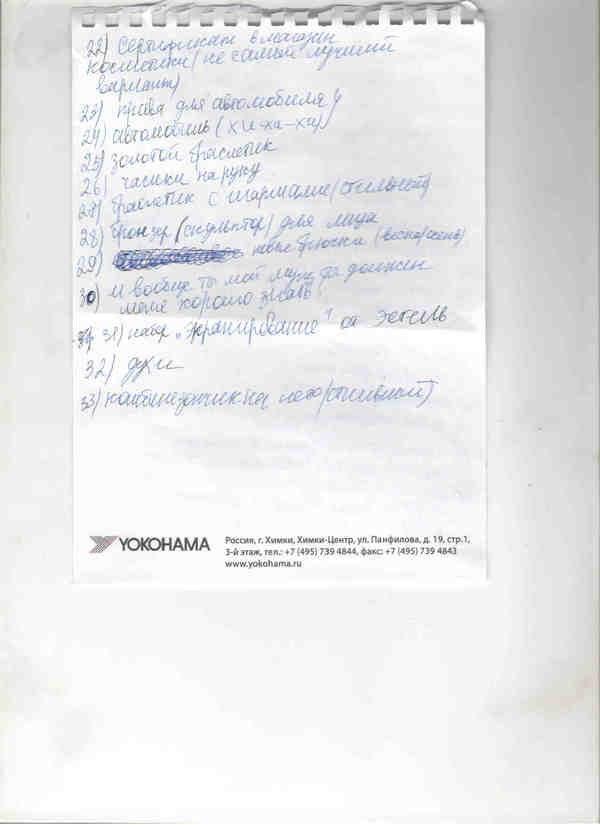 22) Сертификат в магазин
косметики (не самый лучший
вариант)
23) права для автомобиля
24) автомобиль (хи-ха-ха)
25) золотой браслетик
26) часики на руку
27) браслетик с шармами (стильный)
28) бронзер (скульптор) для лица
29) новые брючки (весна/осень)
30) и вообще ты мой муж да должен
меня хорошо знать!
31) набор "экранирование" от Эстель
32) духи
33) комбинезончик на лето (стильный)
YOKOHAMA
Россия, г. Химки, Химки-Центр, ул. Панфилова, д. 19, стр.1,
3-й этаж, тел.: +7 (495) 739 4844, факс: +7 (495) 739 4843
www.yokohama.ru